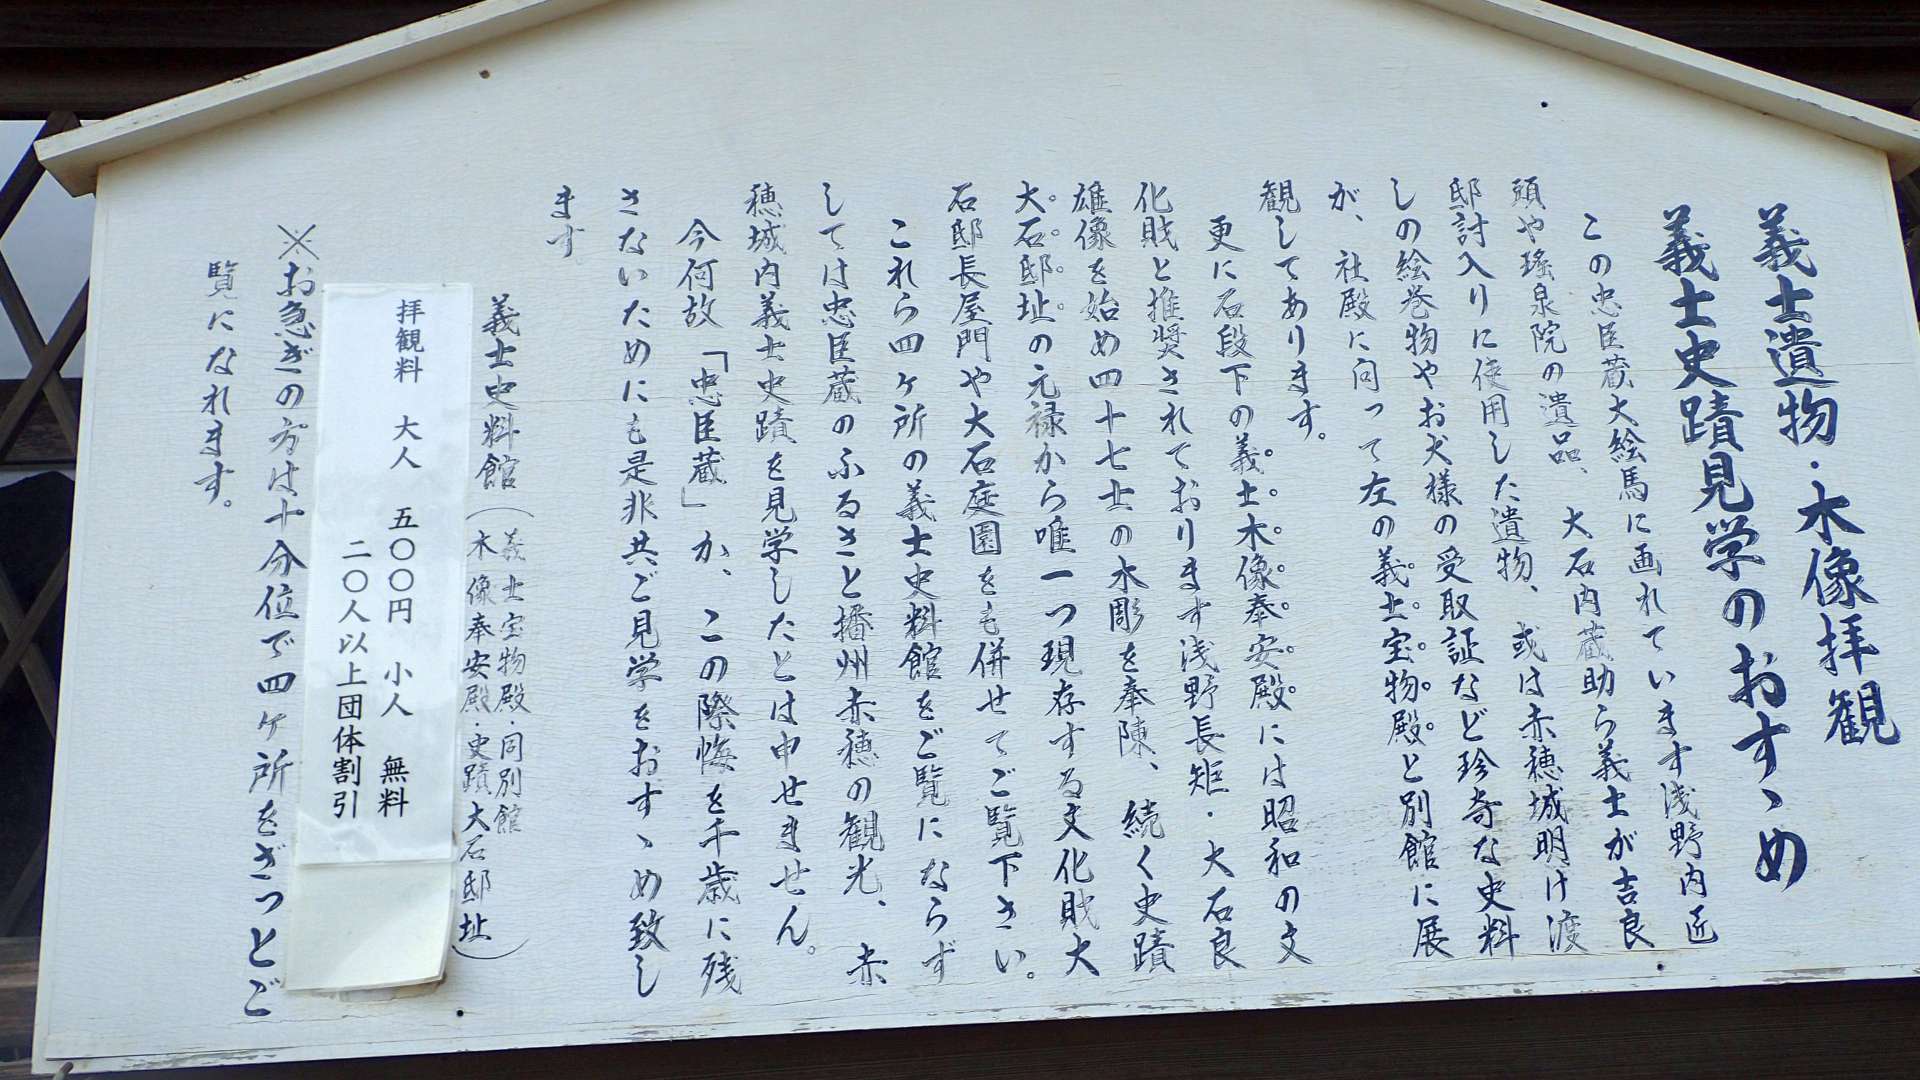 義士遺物・木像拝観
義士史蹟見学のおすゝめ
この忠臣蔵大絵馬に画れています浅野内匠
頭や瑤泉院の遺品、大石内蔵助ら義士が吉良
邸討入りに使用した遺物、或は赤穂城明け渡
しの絵巻物やお犬様の受取証など珍奇な史料
が、社殿に向って左の義士宝物殿と別館に展
観してあります。
更に石段下の義士木像奉安殿には昭和の文
化財と推奨されております浅野長矩・大石良
雄像を始め四十七士の木彫を奉陳、続く史蹟
大石邸址の元禄から唯一つ現存する文化財大
石邸長屋門や大石庭園をも併せてご覧下さい。
これら四ヶ所の義士史料館をご覧にならず
しては忠臣蔵のふるさと播州赤穂の観光、赤
穂城内義士史蹟を見学したとは申せません。
今何故「忠臣蔵」か、この際悔を千歳に残
さないためにも是非共ご見学をおすゝめ致し
ます
義士史料館(義士宝物殿・同別館
木像奉安殿・史蹟大石邸址)
拝観料 大人 五〇〇円 小人 無料
二〇人以上団体割引
※お急ぎの方は十分位で四ヶ所をざっとご
覧になれます。